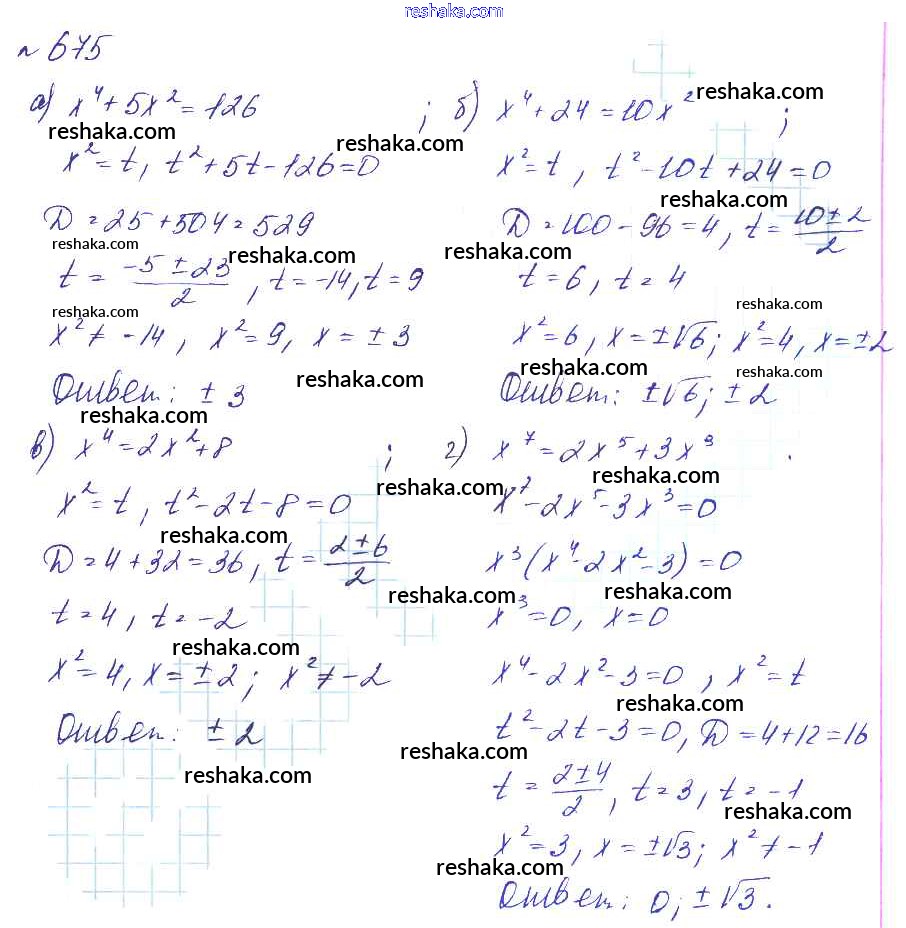 reshaka.com
№ 675
а) x⁴ + 5x² = 126 ;
reshaka.com
reshaka.com
x² = t, t² + 5t - 126 = 0
D = 25 + 504 = 529
reshaka.com
reshaka.com
t = (-5 ± 23)/2 , t = -14, t = 9
reshaka.com
x² ≠ -14, x² = 9, x = ± 3
reshaka.com
Ответ: ± 3
reshaka.com
б) x⁴ + 24 = 10x² ;
reshaka.com
x² = t, t² - 10t + 24 = 0
reshaka.com
D = 100 - 96 = 4, t = (10 ± 2)/2
reshaka.com
t = 6, t = 4
reshaka.com
x² = 6, x = ±√6; x² = 4, x = ±2
reshaka.com
Ответ: ±√6; ±2
в) x⁴ = 2x² + 8 ;
reshaka.com
x² = t, t² - 2t - 8 = 0
reshaka.com
D = 4 + 32 = 36, t = (2 ± 6)/2
reshaka.com
t = 4, t = -2
reshaka.com
x² = 4, x = ± 2; x² ≠ -2
Ответ: ± 2
reshaka.com
reshaka.com
г) x⁷ = 2x⁵ + 3x³ .
reshaka.com
x⁷ - 2x⁵ - 3x³ = 0
x³(x⁴ - 2x² - 3) = 0
reshaka.com
x³ = 0, x = 0
x⁴ - 2x² - 3 = 0, x² = t
reshaka.com
t² - 2t - 3 = 0, D = 4 + 12 = 16
t = (2 ± 4)/2 , t = 3, t = -1
reshaka.com
x² = 3, x = ±√3; x² ≠ -1
reshaka.com
Ответ: 0; ±√3.